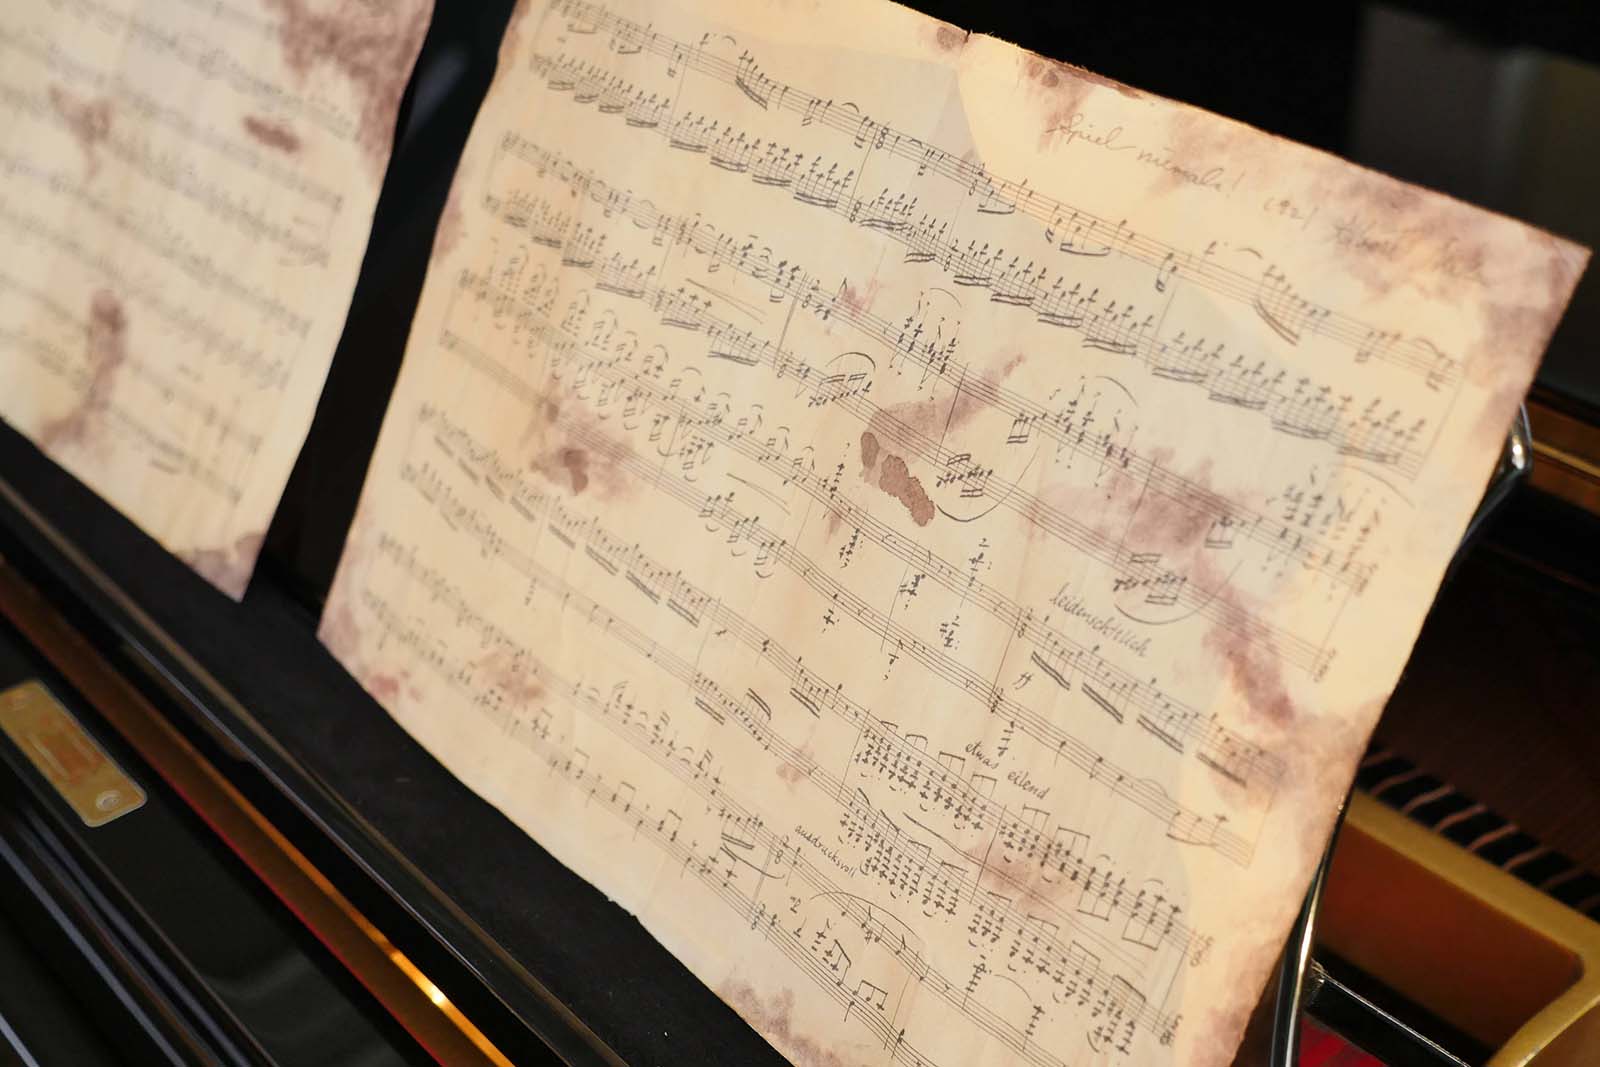 Spiel niemals! 1921
leidenschtlich
ff
etwas eilend
ausdrucksvoll